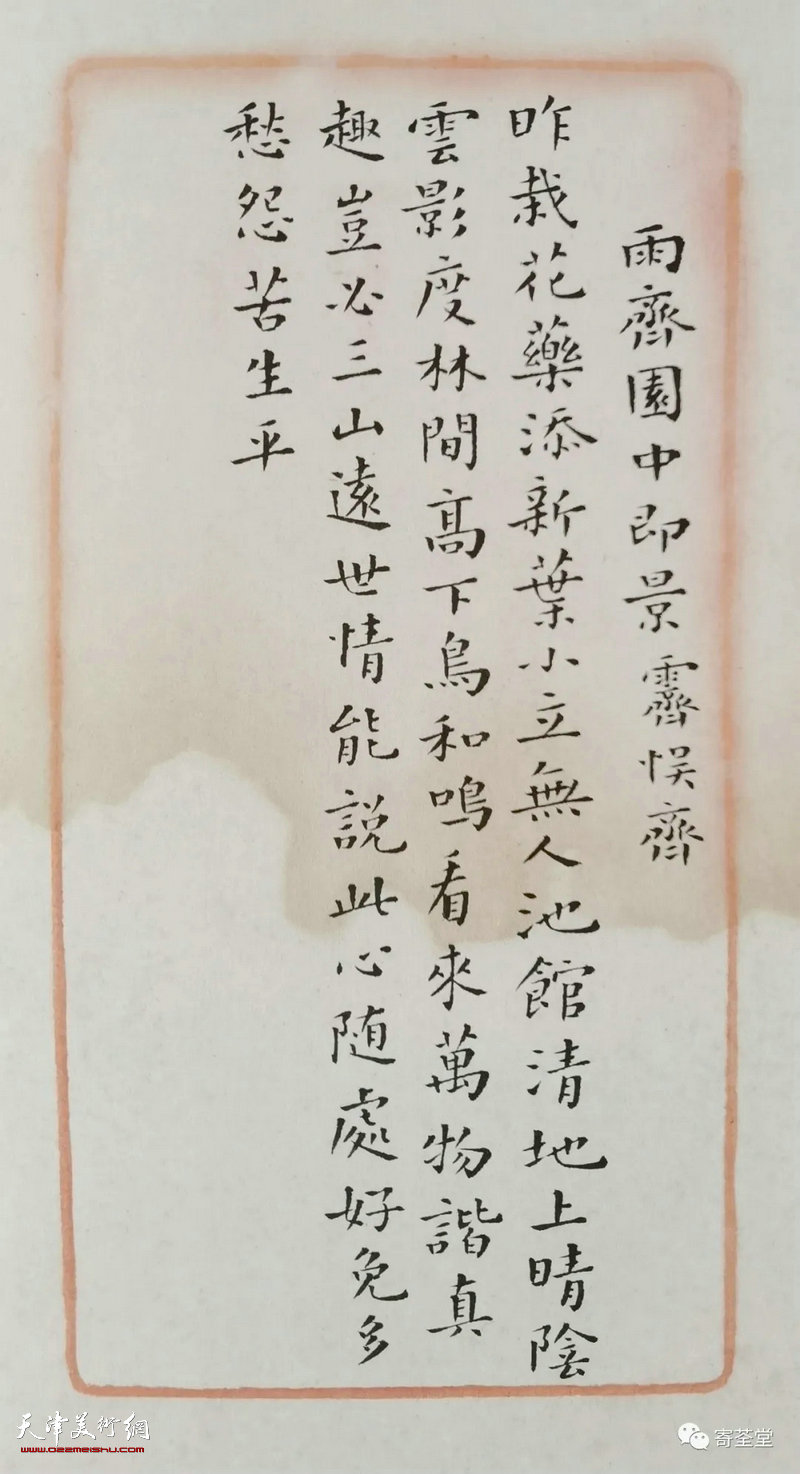 雨齊園中即景 霽悮齊
昨栽花藥添新葉小立無人池館清地上晴陰
雲影度林間高下鳥和鳴看來萬物諧真
趣豈必三山遠世情能說此心随處好免多
愁怨苦生平
天津美術網
www.022meishu.com
寄荃堂